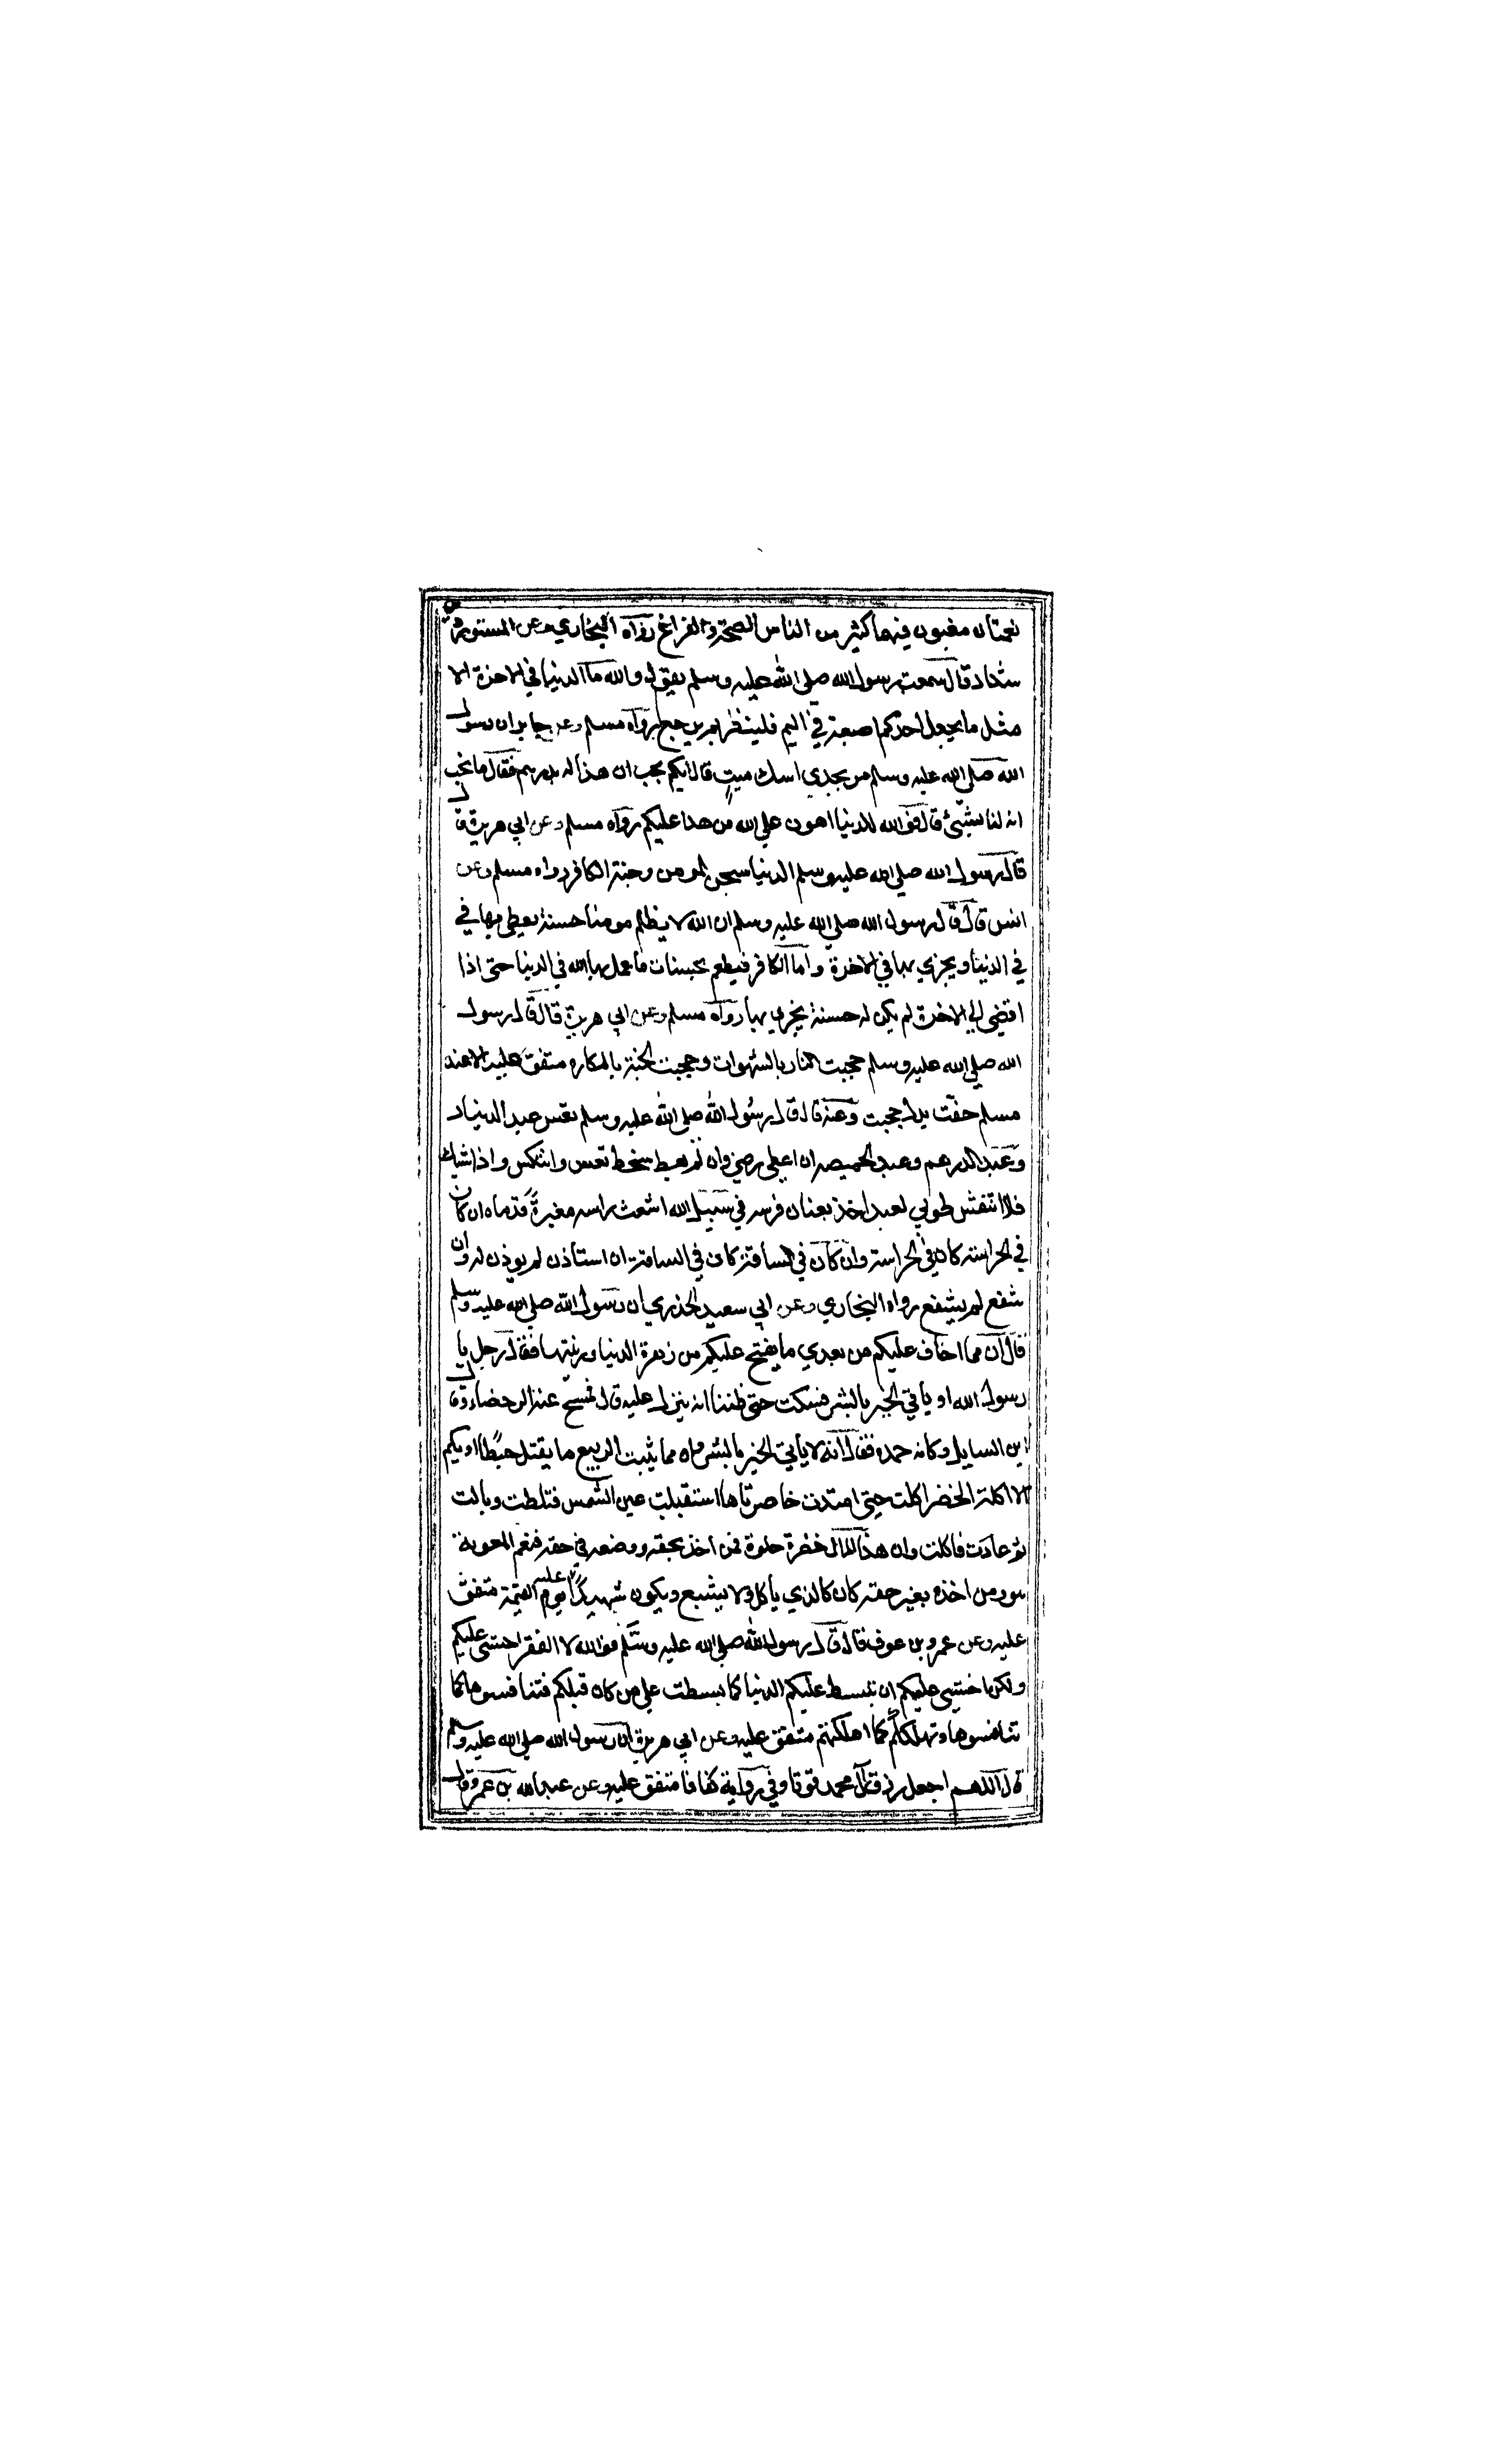 نعمتان مغبون فيهما كثير من الناس الصحة والفراغ رواه البخاري وعن المستورد بن
شداد قال سمعت رسول الله صلى الله عليه وسلم يقول والله ما الدنيا في الاخرة الا
مثل ما يجعل احدكم اصبعه في اليم فلينظر بم يرجع رواه مسلم وعن جابر ان رسول
الله صلي الله عليه وسلم مر بجدي اسك ميت قال ايكم يحب ان هذا له بدرهم فقال ما نحب
انه لنا بشيئ قال فو الله للدنيا اهون علي الله من هذا عليكم رواه مسلم وعن ابي هريرة قال
قال رسول الله صلي الله عليه وسلم الدنيا سجن المومن وجنة الكافر رواه مسلم وعن
انس قال قال رسول الله صلي الله عليه وسلم ان الله لا يظلم مومنا حسنة يعطي بها في
في الدنيا ويجزي بها في الاخرة واما الكافر فيطعم بحسنات ما عمل بها لله في الدنيا حتى اذا
افضي الي الاخرة لم يكن له حسنة يجزي بها رواه مسلم وعن ابي هريرة قال قال رسول
الله صلي الله عليه وسلم حجبت النار بالشهوات وحجبت الجنة بالمكاره متفق عليه الا عند
مسلم حفت بدل حجبت وعنه قال قال رسول الله صلي الله عليه وسلم تعس عبد الدينار
وعبد الدرهم وعبد الخميصه ان اعطي رضي وان لم يعط سخط تعس وانتكس واذا شيك
فلا انتقش طوبي لعبد اخذ بعنان فرسه في سبيل الله اشعث راسه مغبرة قدماه ان كان
في الحراسة كان في الحراسة وان كان في الساقة كان في الساقة ان استأذن لم يوذن له وان
شفع لم يشفع رواه البخاري وعن ابي سعيد الخدري ان رسول الله صلي الله عليه وسلم
قال ان مما اخاف عليكم من بعدي ما يفتح عليكم من زهرة الدنيا وزينتها فقال رجل يا
رسول الله او يأتي الخير بالشر فسكت حتى ظننا انه ينزل عليه قال فمسح عنه الرحضاء وقال
اين السايل وكانه حمده فقال انه لا يأتي الخير بالشر وان مما ينبت الربيع ما يقتل حبطا او يلم
الا اكلة الخضر اكلت حتي امتدت خاصرتاها استقبلت عين الشمس فثلطت وبالت
ثم عادت فاكلت وان هذا المال خضرة حلوة فمن اخذ بحقه ووضعه في حقه فنعم المعونة
هو ومن اخذه بغير حقه كان كالذي يأكل ولا يشبع ويكون شهيدا عليه يوم القيمة متفق
عليه وعن عمرو بن عوف قال قال رسول الله صلي الله عليه وسلم فو الله لا الفقر اخشي عليكم
ولكن اخشي عليكم ان تبسط عليكم الدنيا كما بسطت علي من كان قبلكم فتنافسوها كما
تنافسوها وتهلككم كما اهلكتهم متفق عليه وعن ابي هريرة ان رسول الله صلي الله عليه وسلم
قال اللهم اجعل رزق آل محمد قوتا وفي رواية كفافا متفق عليه وعن عبد الله بن عمرو قال